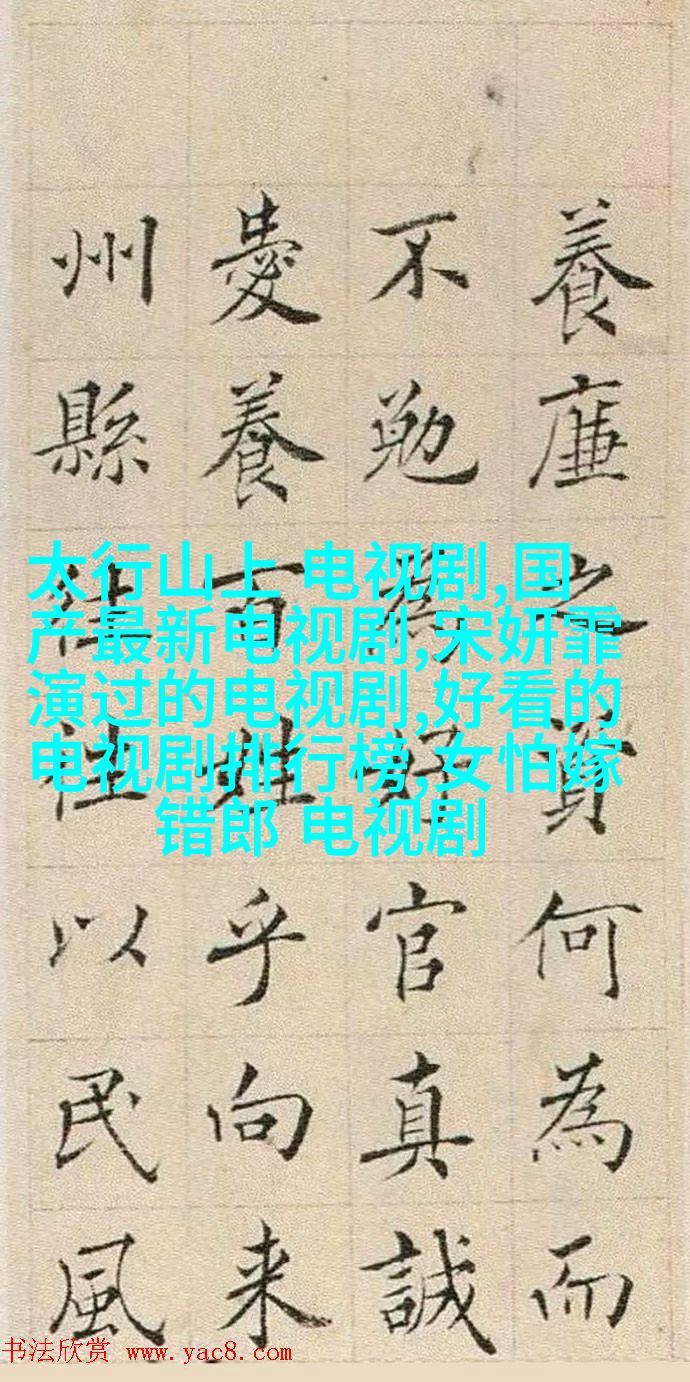 養廉之資何為而
不勉為好官真誠
愛養百姓乎向来
州縣往往以民風
太行山上 电视剧,国
产最新电视剧,宋妍霏
演过的电视剧,好看的
电视剧排行榜,女怕嫁
错郎 电视剧
书法欣赏 www.yac8.com